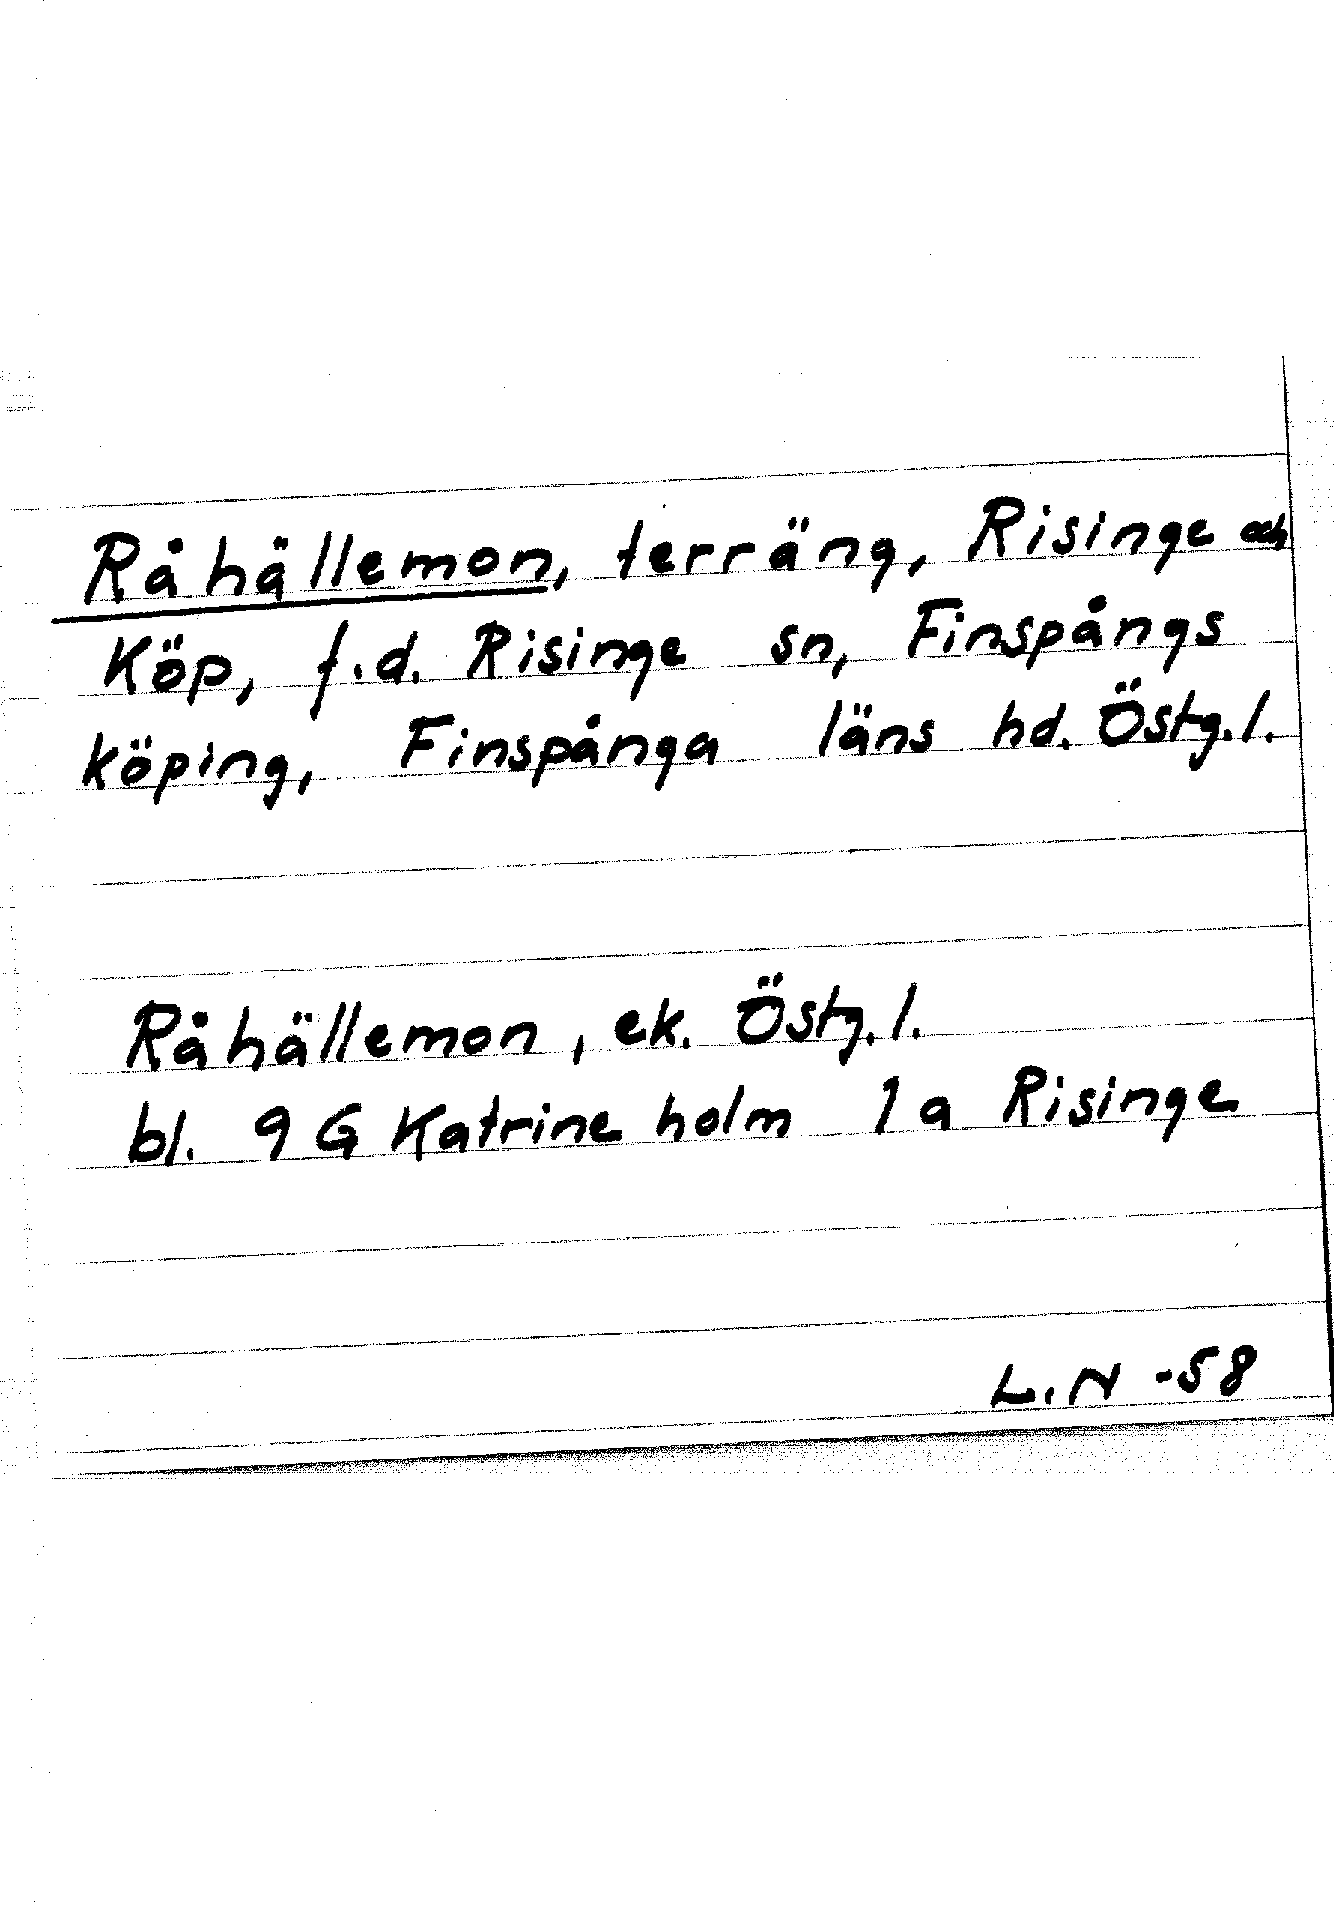 Råhällemon, terräng, Risinge och
Köp, f.d. Risinge sn, Finspångs
köping, Finspånga läns hd. Östg.l.
Råhällemon, ek. Östg.l.
bl. 9 G Katrineholm 1 a Risinge
L.N -58